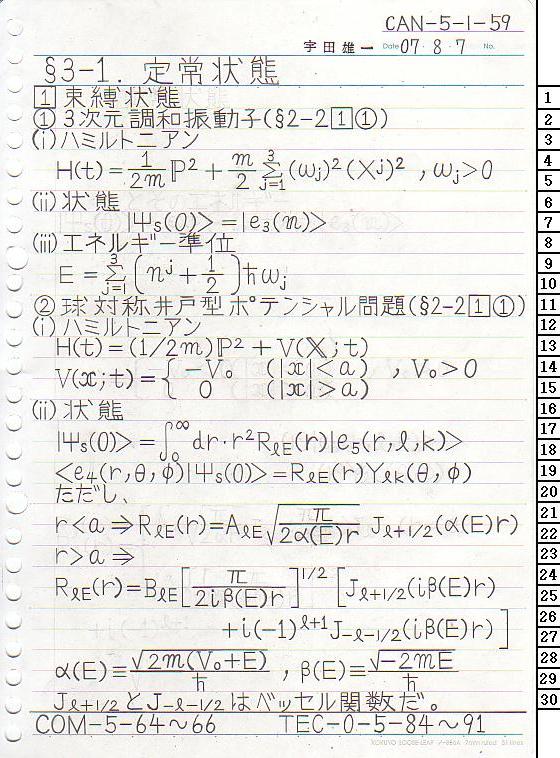 CAN-5-1-59
宇田雄一 Date 07・8・7 No.
§3-1. 定常状態
1 束縛状態
① 3次元調和振動子(§2-2 1 ①)
(i) ハミルトニアン
H(t) = 1/2m ℙ² + m/2 Σ_{j=1}^{3} (ωj)² (Xj)² , ωj>0
(ii) 状態
|Ψs(0)> = |e₃(n)>
(iii) エネルギー準位
E = Σ_{j=1}^{3} (n^j + 1/2) ħωj
② 球対称井戸型ポテンシャル問題(§2-2 1 ①)
(i) ハミルトニアン
H(t) = (1/2m)ℙ² + V(𝕏;t)
V(x;t) = { -V₀ (|x|<a) , V₀>0
0 (|x|>a)
(ii) 状態
|Ψs(0)> = ∫₀^∞ dr・r² R_{ℓE}(r)|e₅(r,ℓ,k)>
<e₄(r,θ,φ)|Ψs(0)> = R_{ℓE}(r)Y_{ℓk}(θ,φ)
ただし、
r<a ⇒ R_{ℓE}(r) = A_{ℓE} √(π/2α(E)r) J_{ℓ+1/2}(α(E)r)
r>a ⇒
R_{ℓE}(r) = B_{ℓE} [π/2iβ(E)r]^{1/2} [J_{ℓ+1/2}(iβ(E)r)
+i(-1)^{ℓ+1} J_{-ℓ-1/2}(iβ(E)r)]
α(E) ≡ √2m(V₀+E)/ħ , β(E) ≡ √-2mE/ħ
J_{ℓ+1/2}とJ_{-ℓ-1/2}はベッセル関数だ。
COM-5-64〜66 TEC-0-5-84〜91
1
2
3
4
5
6
7
8
9
10
11
12
13
14
15
16
17
18
19
20
21
22
23
24
25
26
27
28
29
30